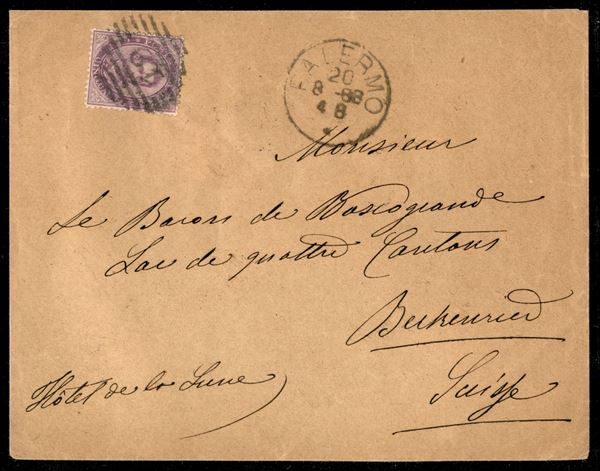 PALERMO
20
8 -88
4 8
Monsieur
Le Baron de Boscogrande
Lac de quattre Cantons
Beckenried
Suisse
Hôtel de la Lune